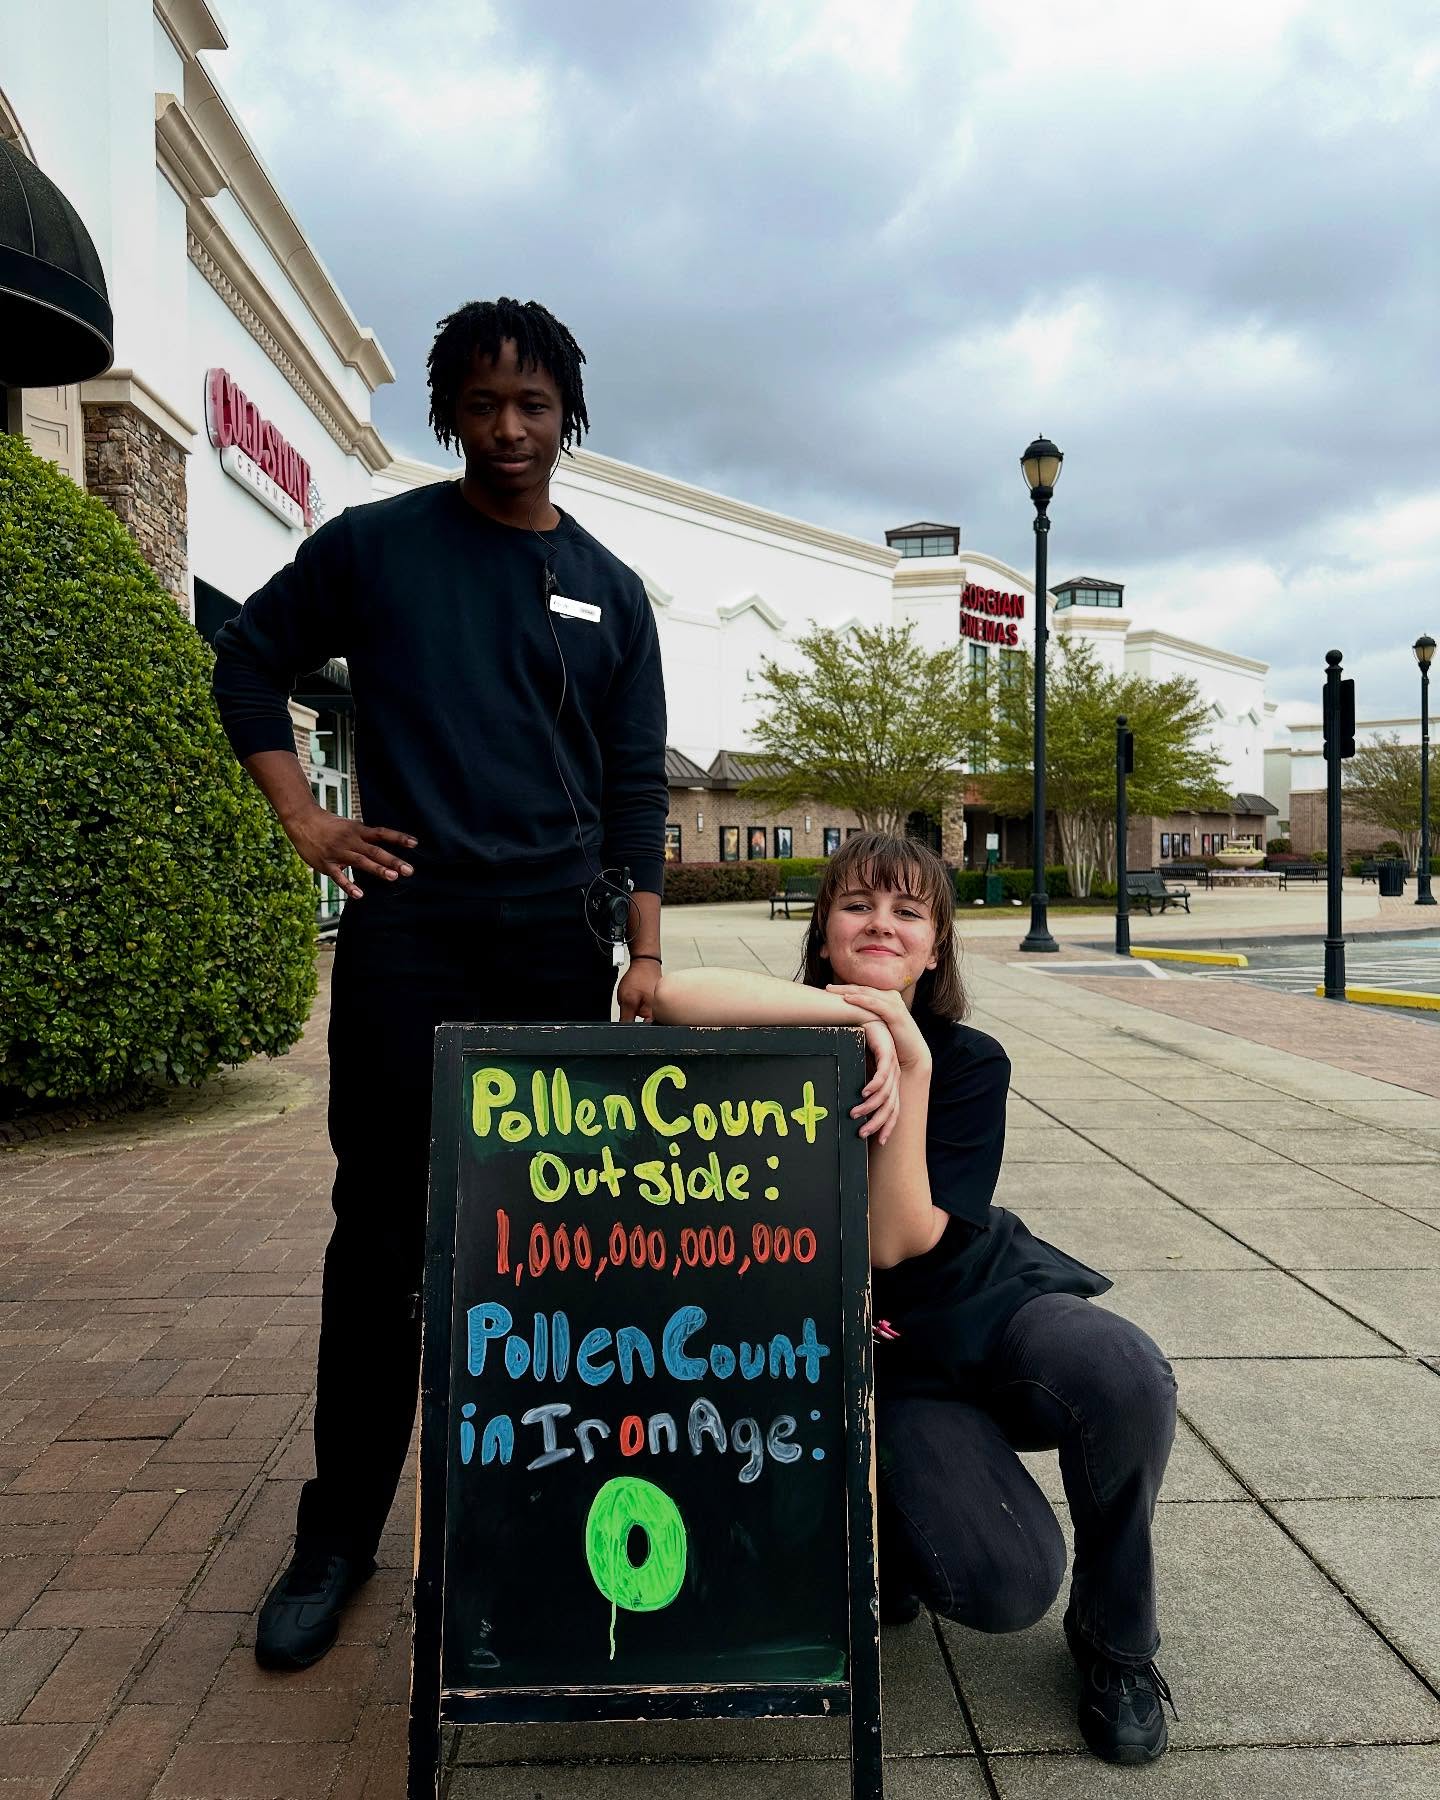 COLD STONE
CREAMERY
GEORGIAN
CINEMAS
Pollen Count
Outside:
1,000,000,000,000
Pollen Count
in Iron Age:
0